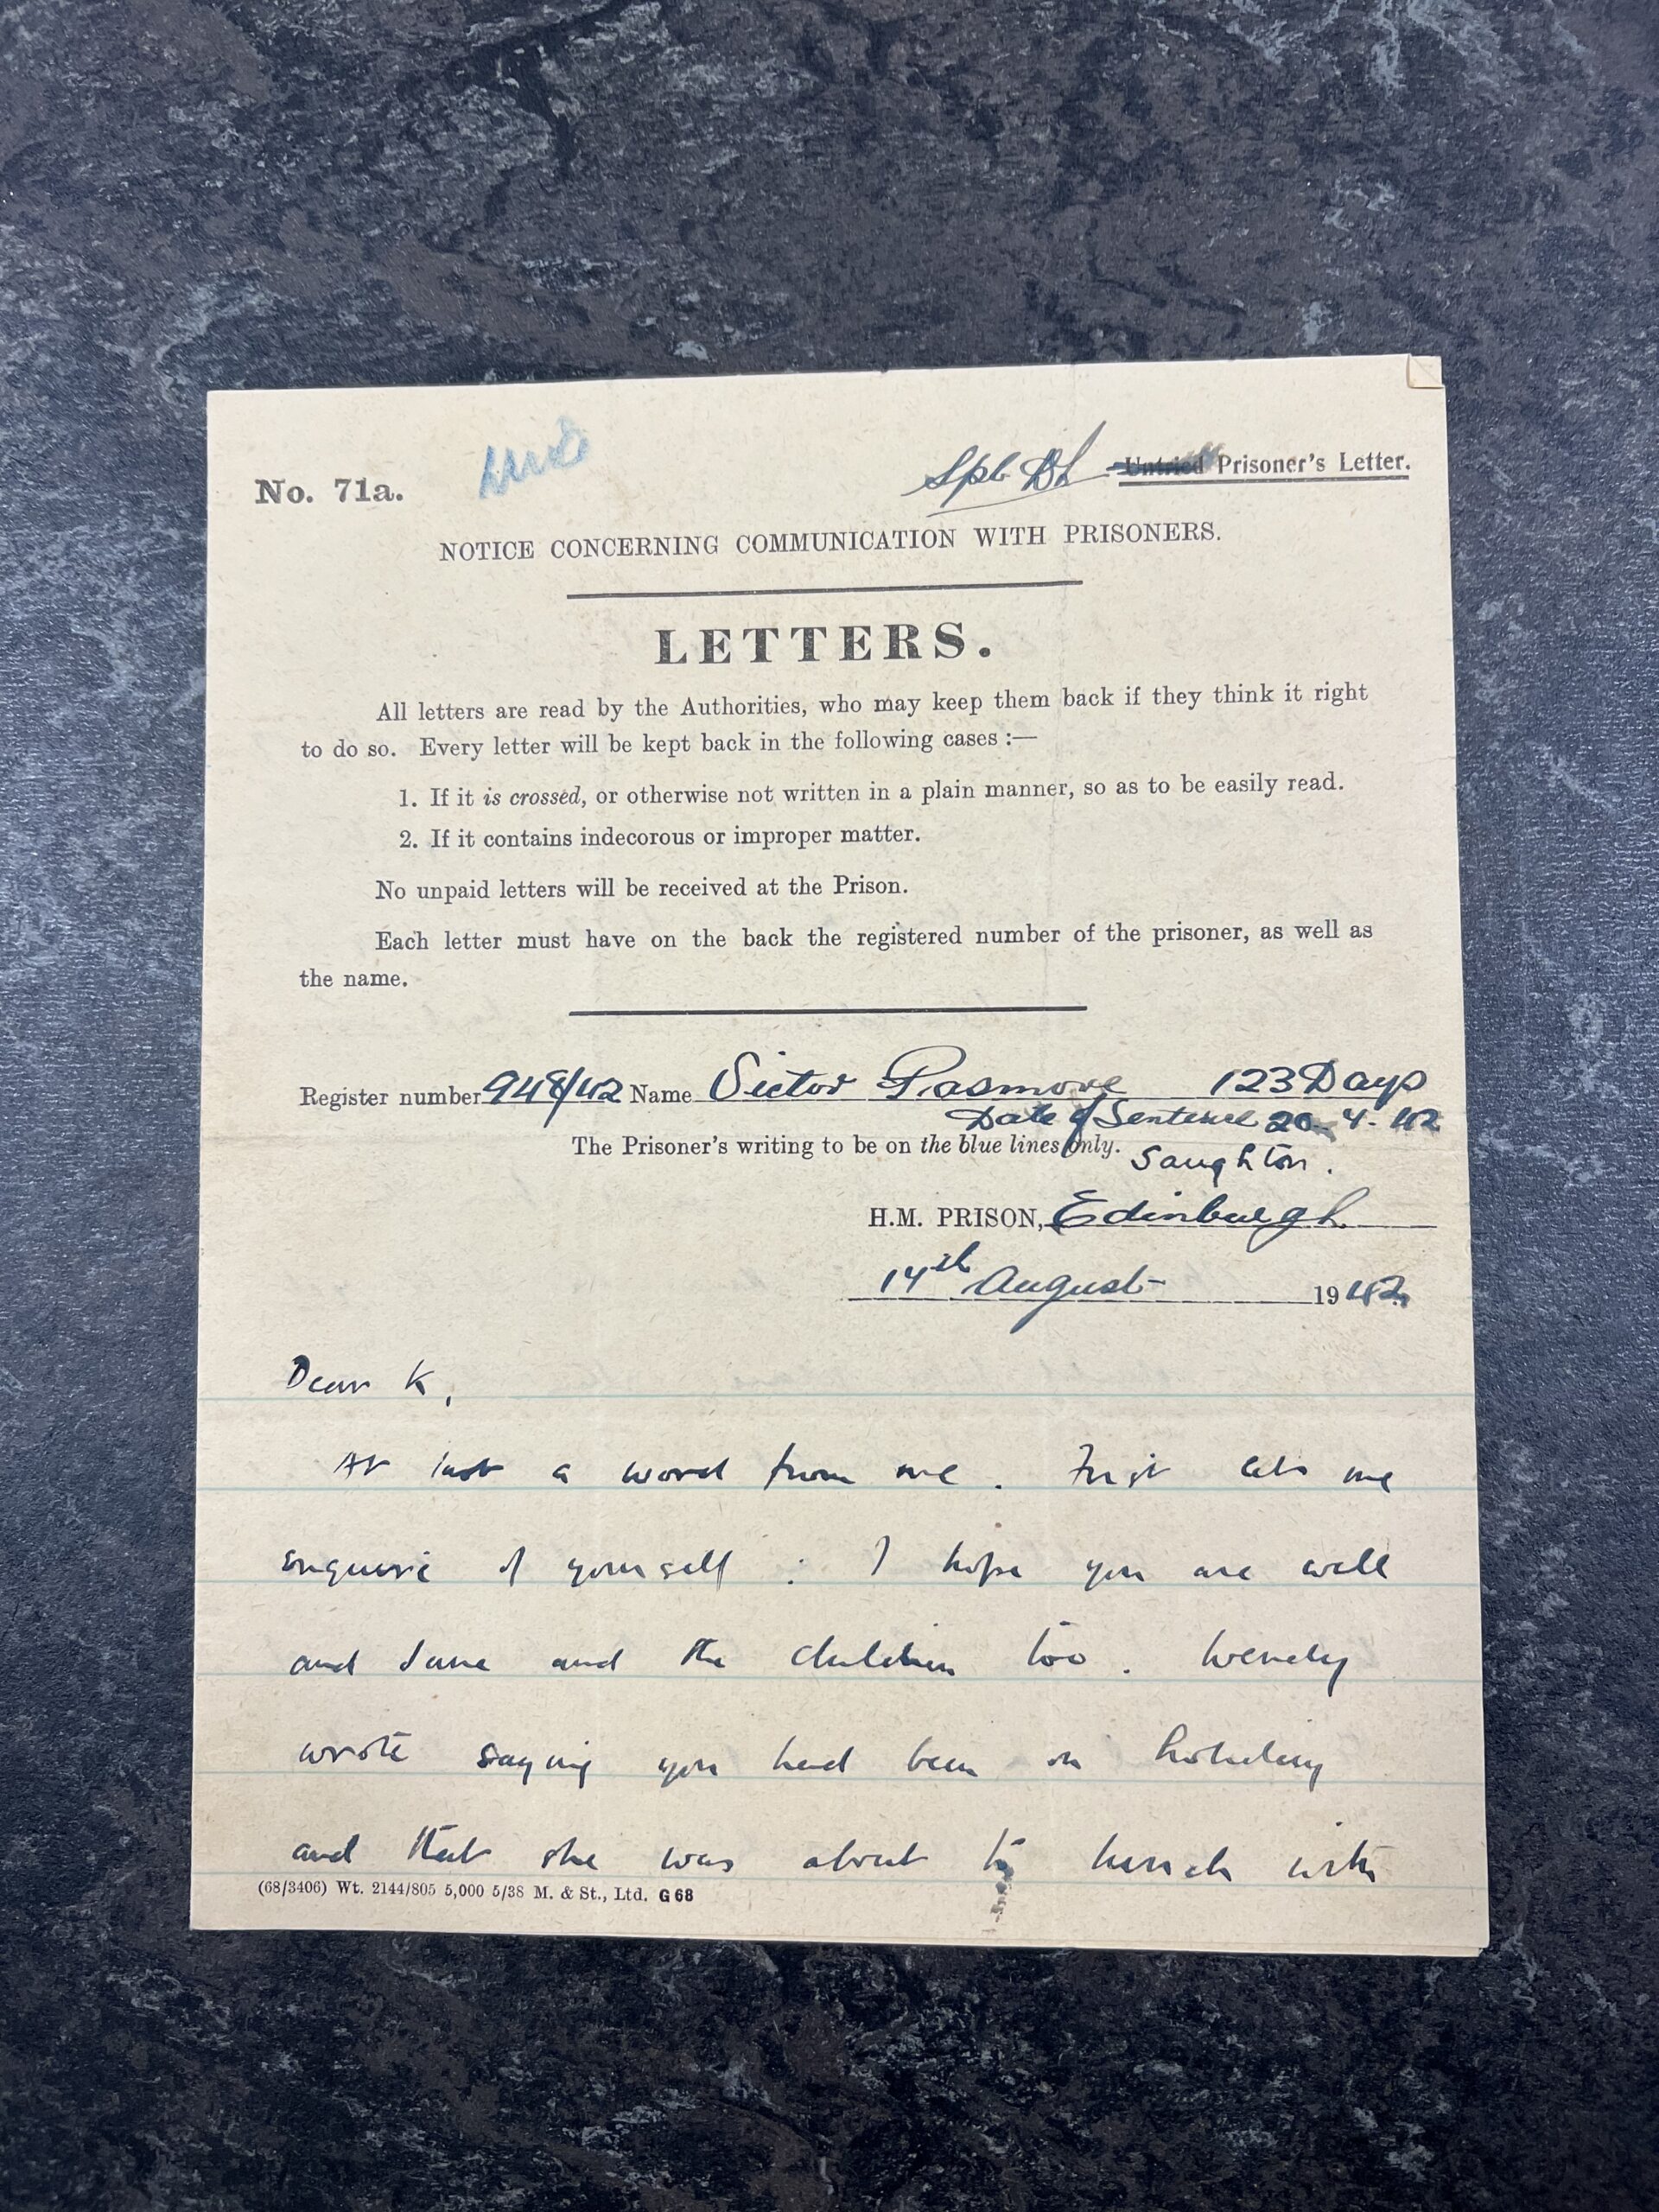 No. 71a.
Prisoner's Letter.
NOTICE CONCERNING COMMUNICATION WITH PRISONERS.
LETTERS.
All letters are read by the Authorities, who may keep them back if they think it right
to do so. Every letter will be kept back in the following cases :—
1. If it is crossed, or otherwise not written in a plain manner, so as to be easily read.
2. If it contains indecorous or improper matter.
No unpaid letters will be received at the Prison.
Each letter must have on the back the registered number of the prisoner, as well as
the name.
Register number 948/42 Name Victor Pasmore 123 Days
Date of Sentence 20-4-42
The Prisoner's writing to be on the blue lines only.
Saughton.
H.M. PRISON, Edinburgh
14th August 1942
Dear K,
At last a word from me. First let me
enquire of yourself : I hope you are well
and Jane and the children too. Wendy
wrote saying you had been on holiday
and that she was about to lunch with
(68/3406) Wt. 2144/805 5,000 5/38 M. & St., Ltd. G 68